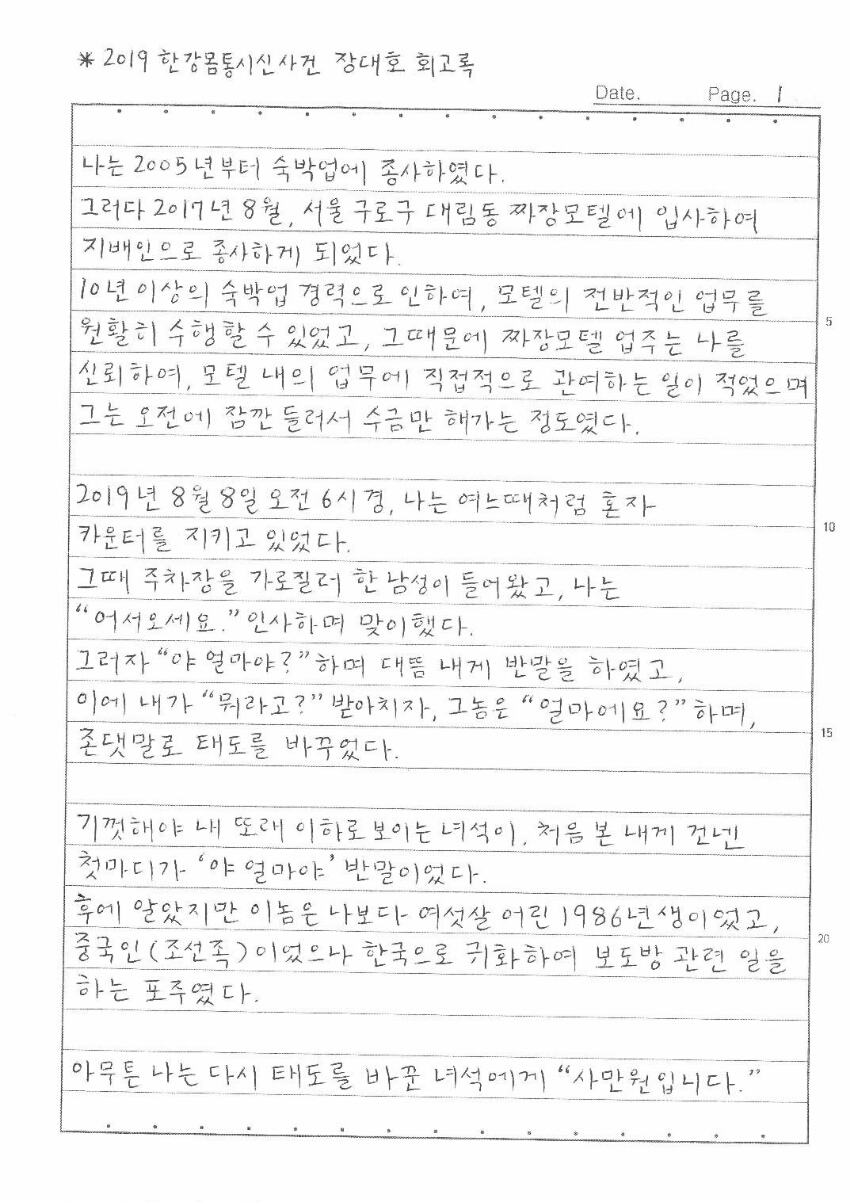 * 2019 한강몸통시신사건 장대호 회고록
Date. Page. 1
나는 2005년부터 숙박업에 종사하였다.
그러다 2017년 8월, 서울 구로구 대림동 짜장모텔에 입사하여
지배인으로 종사하게 되었다.
10년 이상의 숙박업 경력으로 인하여, 모텔의 전반적인 업무를
5
원활히 수행할 수 있었고, 그때문에 짜장모텔 업주는 나를
신뢰하여, 모텔 내의 업무에 직접적으로 관여하는 일이 적었으며
그는 오전에 잠깐 들러서 수금만 해가는 정도였다.
2019년 8월 8일 오전 6시경, 나는 여느때처럼 혼자
10
카운터를 지키고 있었다.
그때 주차장을 가로질러 한 남성이 들어왔고, 나는
“어서오세요.” 인사하며 맞이했다.
그러자 “야 얼마야?” 하며 대뜸 내게 반말을 하였고,
이에 내가 “뭐라고?” 받아치자, 그놈은 “얼마에요?” 하며,
15
존댓말로 태도를 바꾸었다.
기껏해야 내 또래 이하로 보이는 녀석이, 처음 본 내게 건넨
첫마디가 ‘야 얼마야’ 반말이었다.
후에 알았지만 이놈은 나보다 여섯살 어린 1986년생이었고,
20
중국인(조선족)이었으나 한국으로 귀화하여 보도방 관련 일을
하는 포주였다.
아무튼 나는 다시 태도를 바꾼 녀석에게 “사만원입니다.”